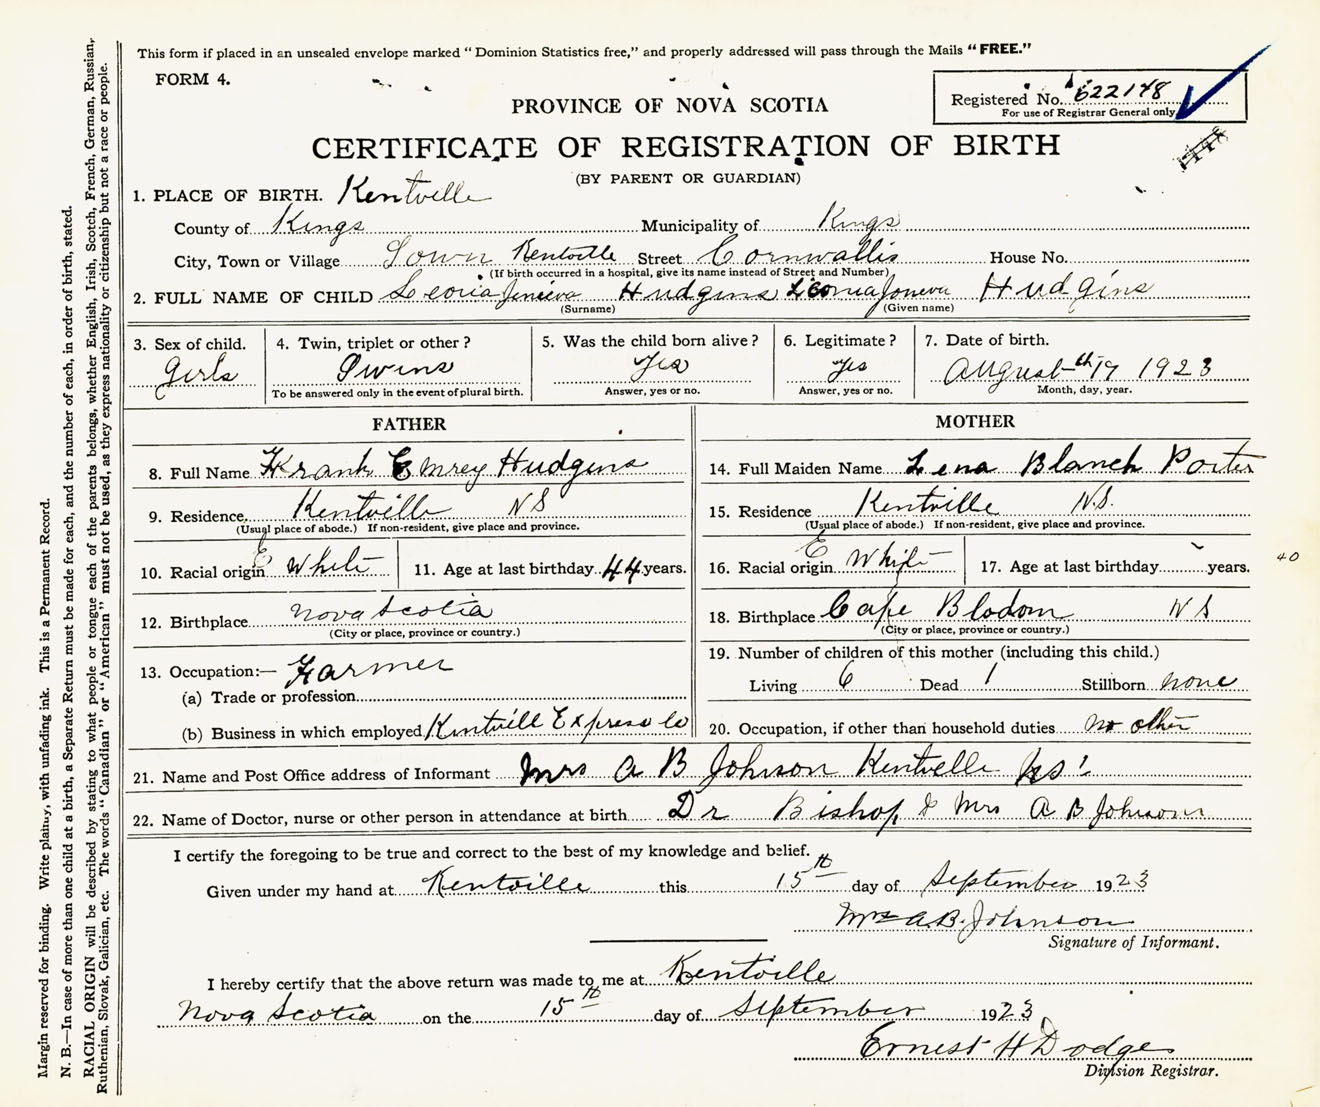 This form if placed in an unsealed envelope marked "Dominion Statistics free," and properly addressed will pass through the Mails "FREE."
FORM 4.
Registered No. 622148
For use of Registrar General only
PROVINCE OF NOVA SCOTIA
CERTIFICATE OF REGISTRATION OF BIRTH
(BY PARENT OR GUARDIAN)
1. PLACE OF BIRTH. Kentville
County of Kings Municipality of Kings
City, Town or Village Town Kentville Street Cornwallis House No.
(If birth occurred in a hospital, give its name instead of Street and Number)
2. FULL NAME OF CHILD Hudgins Hudgins
(Surname) (Given name)
3. Sex of child. 4. Twin, triplet or other? 5. Was the child born alive? 6. Legitimate? 7. Date of birth.
Girls Twins Yes Yes August th 17 1923
To be answered only in the event of plural birth. Answer, yes or no. Answer, yes or no. Month, day, year.
FATHER
8. Full Name Frank Emrey Hudgins
9. Residence Kentville NS
(Usual place of abode.) If non-resident, give place and province.
10. Racial origin E White 11. Age at last birthday 44 years.
12. Birthplace Nova Scotia
(City or place, province or country.)
13. Occupation:— Farmer
(a) Trade or profession
(b) Business in which employed Kentvill Express Co
MOTHER
14. Full Maiden Name Lena Blanch Porter
15. Residence Kentville N.S.
(Usual place of abode.) If non-resident, give place and province.
16. Racial origin E White 17. Age at last birthday years. 40
18. Birthplace Cape Blodom N S
(City or place, province or country.)
19. Number of children of this mother (including this child.)
Living 6 Dead 1 Stillborn none
20. Occupation, if other than household duties no other
21. Name and Post Office address of Informant Mrs A B Johnson Kentville NS
22. Name of Doctor, nurse or other person in attendance at birth Dr Bishop & Mrs A B Johnson
I certify the foregoing to be true and correct to the best of my knowledge and belief.
Given under my hand at Kentville this 15th day of September 1923
Mrs A.B. Johnson
Signature of Informant.
I hereby certify that the above return was made to me at Kentville
Nova Scotia on the 15th day of September 1923
Ernest H Dodge
Division Registrar.
Margin reserved for binding. Write plainly, with unfading ink. This is a Permanent Record.
N. B.—In case of more than one child at a birth, a Separate Return must be made for each, and the number of each, in order of birth, stated.
RACIAL ORIGIN will be described by stating to what people or tongue each of the parents belongs, whether English, Irish, Scotch, French, German, Russian,
Ruthenian, Slovak, Galician, etc. The words "Canadian" or "American" must not be used, as they express nationality or citizenship but not a race or people.